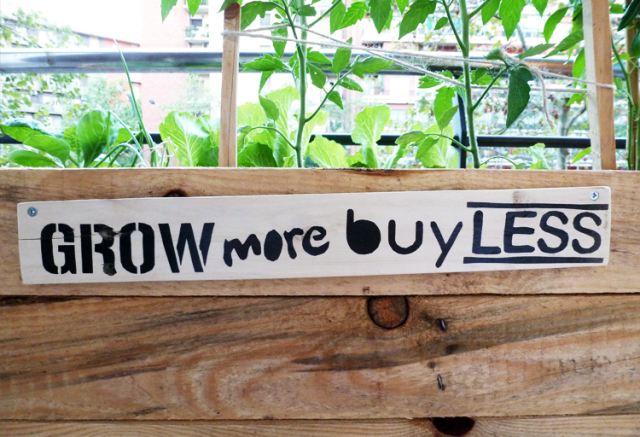 GROW more buy LESS